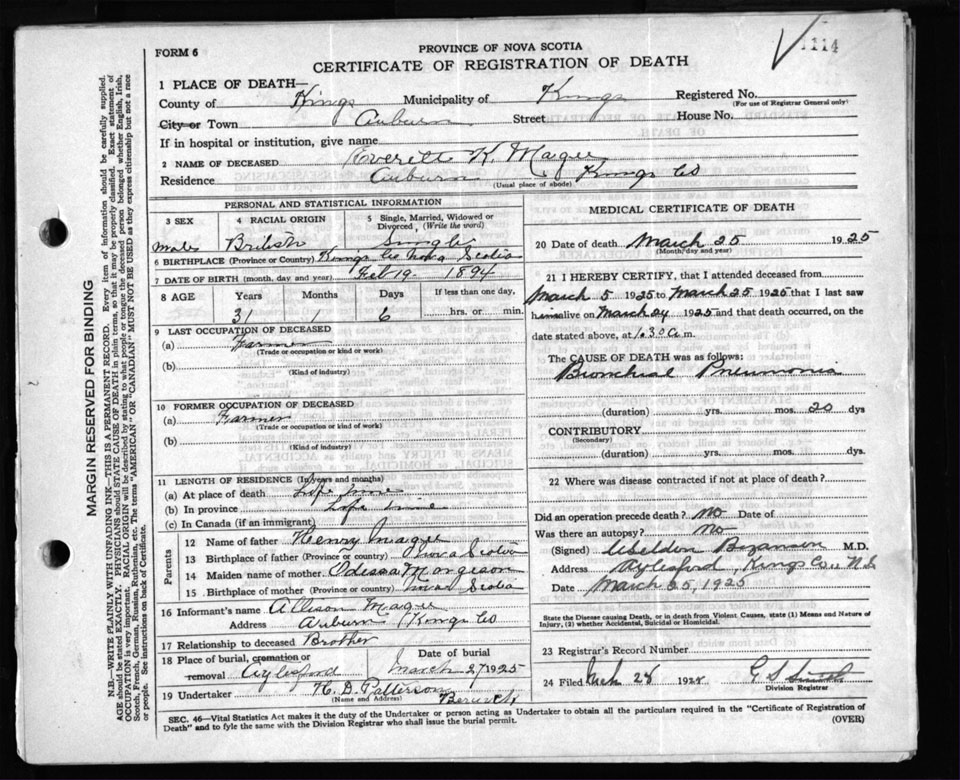 FORM 6
PROVINCE OF NOVA SCOTIA
1114
CERTIFICATE OF REGISTRATION OF DEATH
1 PLACE OF DEATH—
County of Kings Municipality of Kings Registered No.
(For use of Registrar General only)
City or Town Auburn Street House No.
If in hospital or institution, give name
2 NAME OF DECEASED Everett K. Magee
Residence Auburn Kings Co
(Usual place of abode)
PERSONAL AND STATISTICAL INFORMATION
3 SEX 4 RACIAL ORIGIN 5 Single, Married, Widowed or Divorced, (Write the word)
male British Single
6 BIRTHPLACE (Province or Country) Kings Co Nova Scotia
7 DATE OF BIRTH (month, day and year) Feb 19 1894
8 AGE Years Months Days If less than one day,
31 1 6 hrs. or min.
9 LAST OCCUPATION OF DECEASED
(a) Farmer
(Trade or occupation or kind or work)
(b)
(Kind of industry)
10 FORMER OCCUPATION OF DECEASED
(a) Farmer
(Trade or occupation or kind or work)
(b)
(Kind of industry)
11 LENGTH OF RESIDENCE (In years and months)
(a) At place of death Life time
(b) In province Life time
(c) In Canada (if an immigrant)
Parents
12 Name of father Henry Magee
13 Birthplace of father (Province or country) Nova Scotia
14 Maiden name of mother Odessa Morgeson
15 Birthplace of mother (Province or country) Nova Scotia
16 Informant's name Allison Magee
Address Auburn Kings Co
17 Relationship to deceased Brother
18 Place of burial, cremation or removal Date of burial
Aylesford March 27, 1925
19 Undertaker H. D. Patterson
(Name and Address) Berwick
MEDICAL CERTIFICATE OF DEATH
20 Date of death March 25 1925
(Month, day and year)
21 I HEREBY CERTIFY, that I attended deceased from
March 5 1925 to March 25 1925 that I last saw
him alive on March 24 1925 and that death occurred, on the
date stated above, at 1.30 a m.
The CAUSE OF DEATH was as follows:
Bronchial Pneumonia
(duration) yrs. mos. 20 dys
CONTRIBUTORY
(Secondary)
(duration) yrs. mos. dys
22 Where was disease contracted if not at place of death?
Did an operation precede death? No Date of
Was there an autopsy? No
(Signed) Weldon Bezanson M.D.
Address Aylesford, Kings Co. N.S.
Date March 25, 1925
State the Disease causing Death, or in death from Violent Causes, state (1) Means and Nature of
Injury, (2) whether Accidental, Suicidal or Homicidal.
23 Registrar's Record Number
24 Filed Mch 28 G S Smith
Division Registrar
SEC. 46—Vital Statistics Act makes it the duty of the Undertaker or person acting as Undertaker to obtain all the particulars required in the "Certificate of Registration of
Death" and to fyle the same with the Division Registrar who shall issue the burial permit.
(OVER)
MARGIN RESERVED FOR BINDING
N.B.—WRITE PLAINLY WITH UNFADING INK—THIS IS A PERMANENT RECORD. Every item of information should be carefully supplied.
AGE should be stated EXACTLY. PHYSICIANS should STATE CAUSE OF DEATH in plain terms, so that it may be properly classified. Exact statement of
OCCUPATION is very important. RACIAL ORIGIN will be described by stating to what people or tongue the deceased person belonged whether English, Irish,
Scotch, French, German, Russian, Ruthenian, etc. The terms "AMERICAN" OR "CANADIAN" MUST NOT BE USED as they express citizenship but not a race
or people. See instructions on back of Certificate.